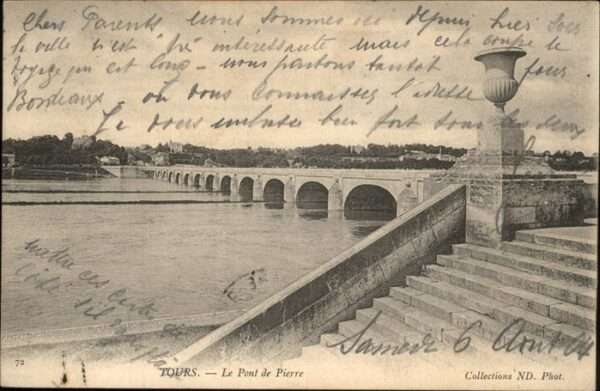 Chers Parents nous sommes ici depuis hier soir
la ville n'est très intéressante mais cela coupe le
voyage qui est long - nous partons tantôt pour
Bordeaux où vous connaissez l'adresse
Je vous embrasse bien fort tous les deux
mettre ces cartes
Samedi 6 Août 04
72
TOURS. - Le Pont de Pierre
Collections ND. Phot.